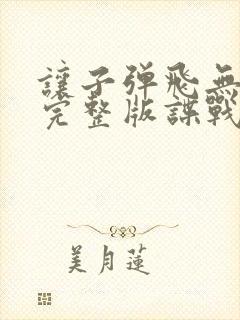 讓子彈飛無
完整版諜戰
美月蓮